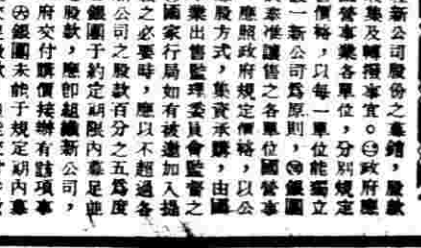 新公司股份之募銷，股款
集及轉撥事宜。㊂政府應
國營事業各單位，分別規定
售價格，以每一單位能獨立
一新公司爲原則，㊃銀團
於奉准讓售之各單位國營事
應照政府規定價格，以公
股方式，集資承購，由國
業出售監理委員會監督之
國家行局如有被邀加入提
之必要時，應以不超過各
新公司之股款百分之五爲度
銀團于約定期限內募足並
股款，應即組織新公司，
府交付購價接辦有該項事
㊅銀團未能于規定期內募